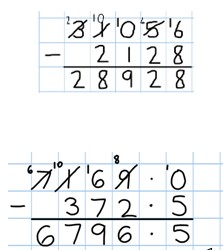 ²3 ¹⁰1 ¹0 ⁴5 ¹6
− 2 1 2 8
2 8 9 2 8
⁶7 ¹⁰1 ¹6 ⁸9 . ¹0
− 3 7 2 . 5
6 7 9 6 . 5